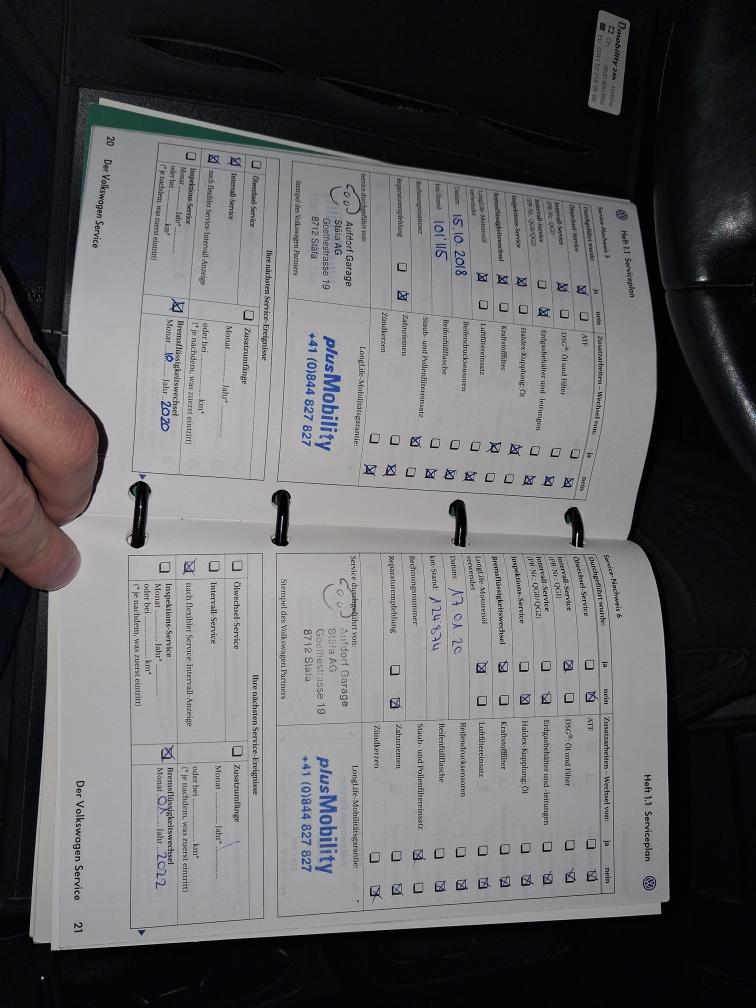 Dmobility 24h Hotline
CH: 0800 600 600
Heft 1.1 Serviceplan
Service-Nachweis 5
Durchgeführt wurde: ja nein
Ölwechsel-Service
Intervall Service
(PR-Nr.: QI1)
Intervall Service
(PR-Nr.: QI6/QI2)
Inspektions-Service
Bremsflüssigkeitswechsel
LongLife-Motorenöl
verwendet
Datum: 15.10.2018
km-Stand: 101'115
Rechnungsnummer:
Reparaturempfehlung
Service durchgeführt von:
Aufdorf Garage
Stäfa AG
Goethestrasse 19
8712 Stäfa
Stempel des Volkswagen Partners
Zusatzarbeiten – Wechsel von: ja nein
ATF
DSG®: Öl und Filter
Erdgasbehälter und -leitungen
Haldex-Kupplung: Öl
Kraftstofffilter
Luftfiltereinsatz
Reifendrucksensoren
Reifenfüllflasche
Staub- und Pollenfiltereinsatz
Zahnriemen
Zündkerzen
LongLife-Mobilitätsgarantie:
plusMobility
+41 (0)844 827 827
Ihre nächsten Service-Ereignisse
Ölwechsel-Service
Intervall-Service
nach flexibler Service-Intervall-Anzeige
Inspektions-Service
Monat ............ Jahr*
oder bei ............ km*
(* je nachdem, was zuerst eintritt)
Zusatzumfänge
Monat ............ Jahr* ............
oder bei ............ km*
(* je nachdem, was zuerst eintritt)
Bremsflüssigkeitswechsel
Monat 10 Jahr 2020
20 Der Volkswagen Service
Heft 1.1 Serviceplan
Service-Nachweis 6
Durchgeführt wurde: ja nein
Ölwechsel-Service
Intervall Service
(PR-Nr.: QI1)
Intervall Service
(PR-Nr.: QI6/QI2)
Inspektions-Service
Bremsflüssigkeitswechsel
LongLife-Motorenöl
verwendet
Datum: 17 01 20
km-Stand: 124874
Rechnungsnummer:
Reparaturempfehlung
Service durchgeführt von:
Aufdorf Garage
Stäfa AG
Goethestrasse 19
8712 Stäfa
Stempel des Volkswagen Partners
Zusatzarbeiten – Wechsel von: ja nein
ATF
DSG®: Öl und Filter
Erdgasbehälter und -leitungen
Haldex-Kupplung: Öl
Kraftstofffilter
Luftfiltereinsatz
Reifendrucksensoren
Reifenfüllflasche
Staub- und Pollenfiltereinsatz
Zahnriemen
Zündkerzen
LongLife-Mobilitätsgarantie:
plusMobility
+41 (0)844 827 827
Ihre nächsten Service-Ereignisse
Ölwechsel-Service
Intervall-Service
nach flexibler Service-Intervall-Anzeige
Inspektions-Service
Monat ............ Jahr* ............
oder bei ............ km*
(* je nachdem, was zuerst eintritt)
Zusatzumfänge
Monat ............ Jahr* ............
oder bei ............ km*
(* je nachdem, was zuerst eintritt)
Bremsflüssigkeitswechsel
Monat 01 Jahr 2022
Der Volkswagen Service 21